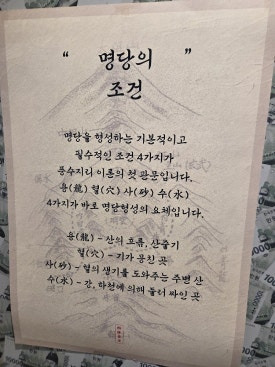 “ 명당의 ”
조건
명당을 형성하는 기본적이고
필수적인 조건 4가지가
풍수지리 이론의 첫 관문입니다.
용(龍) 혈(穴) 사(砂) 수(水)
4가지가 바로 명당형성의 요체입니다.
용(龍) - 산의 흐름, 산줄기
혈(穴) - 기가 뭉친 곳
사(砂) - 혈의 생기를 도와주는 주변 산
수(水) - 강, 하천에 의해 둘러 싸인 곳